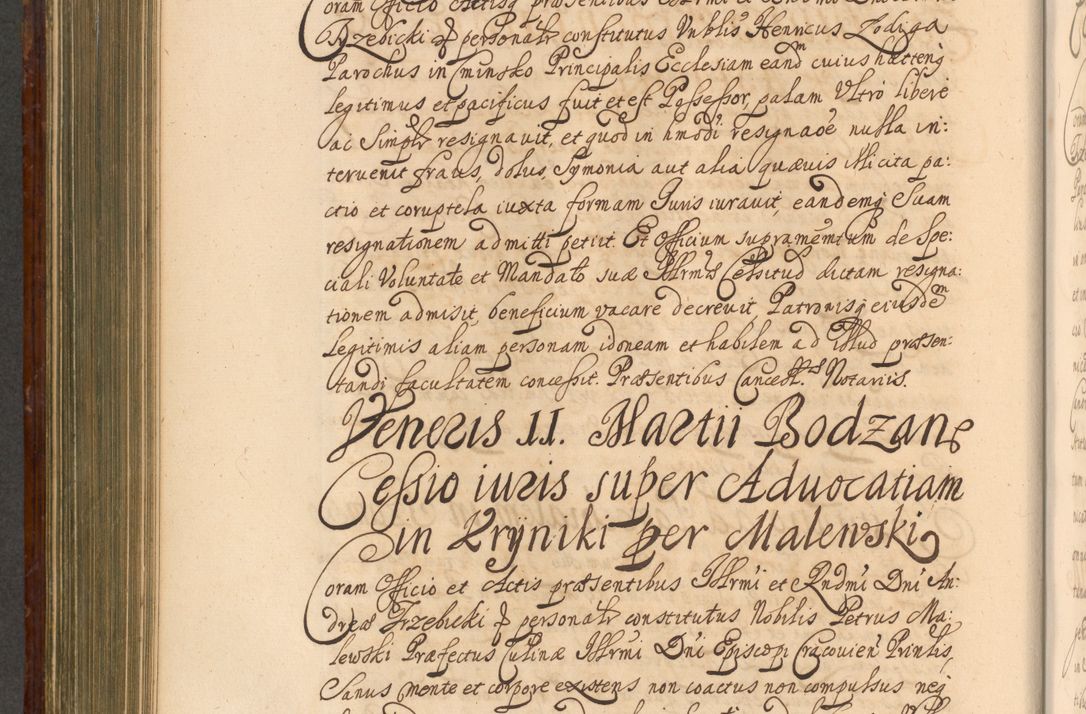 oram Officio Actisq præsentibus Illrmi et Rndmi Dni
Trzebicki & personalr constitutus Vnblis Henricus Zodiga
Parochus in Cminsko Principalis Ecclesiam eandm cuius hactenq
legitimus et pacificus fuit et est Possessor, palam Vltro libere
ac Simplr resignauit, et quod in hmodi resignaoe nulla in:
teruenit fraus, dolus, Symonia aut alia quæuis illicita pa:
ctio et coruptela iuxta formam Iuris iurauit, eandemq Suam
resignationem admitti petiit. Et Officium supramemtum de Spe:
ciali Voluntate et Mandato suæ Illrmæ Celsitud dictam resigna:
tionem admisit, beneficium vacare decreuit, Patronisq eiusdem
legitimis aliam personam idoneam et habilem ad illud præsen:
tandi facultatem concessit. Præsentibus Cancell. Notariis.
Veneris 11. Martii Bodzan
Cessio iuris super Aduocatiam
in Kryniki per Malewski
Coram Officio et Actis præsentibus Illrmi et Rndmi Dni An:
dreæ Trzebicki & personalr constitutus Nobilis Petrus Ma:
lewski Præfectus Culinæ Illrmi Dni Episcopi Cracouien Prinlis,
Sanus mente et corpore existens non coactus non compulsus neq